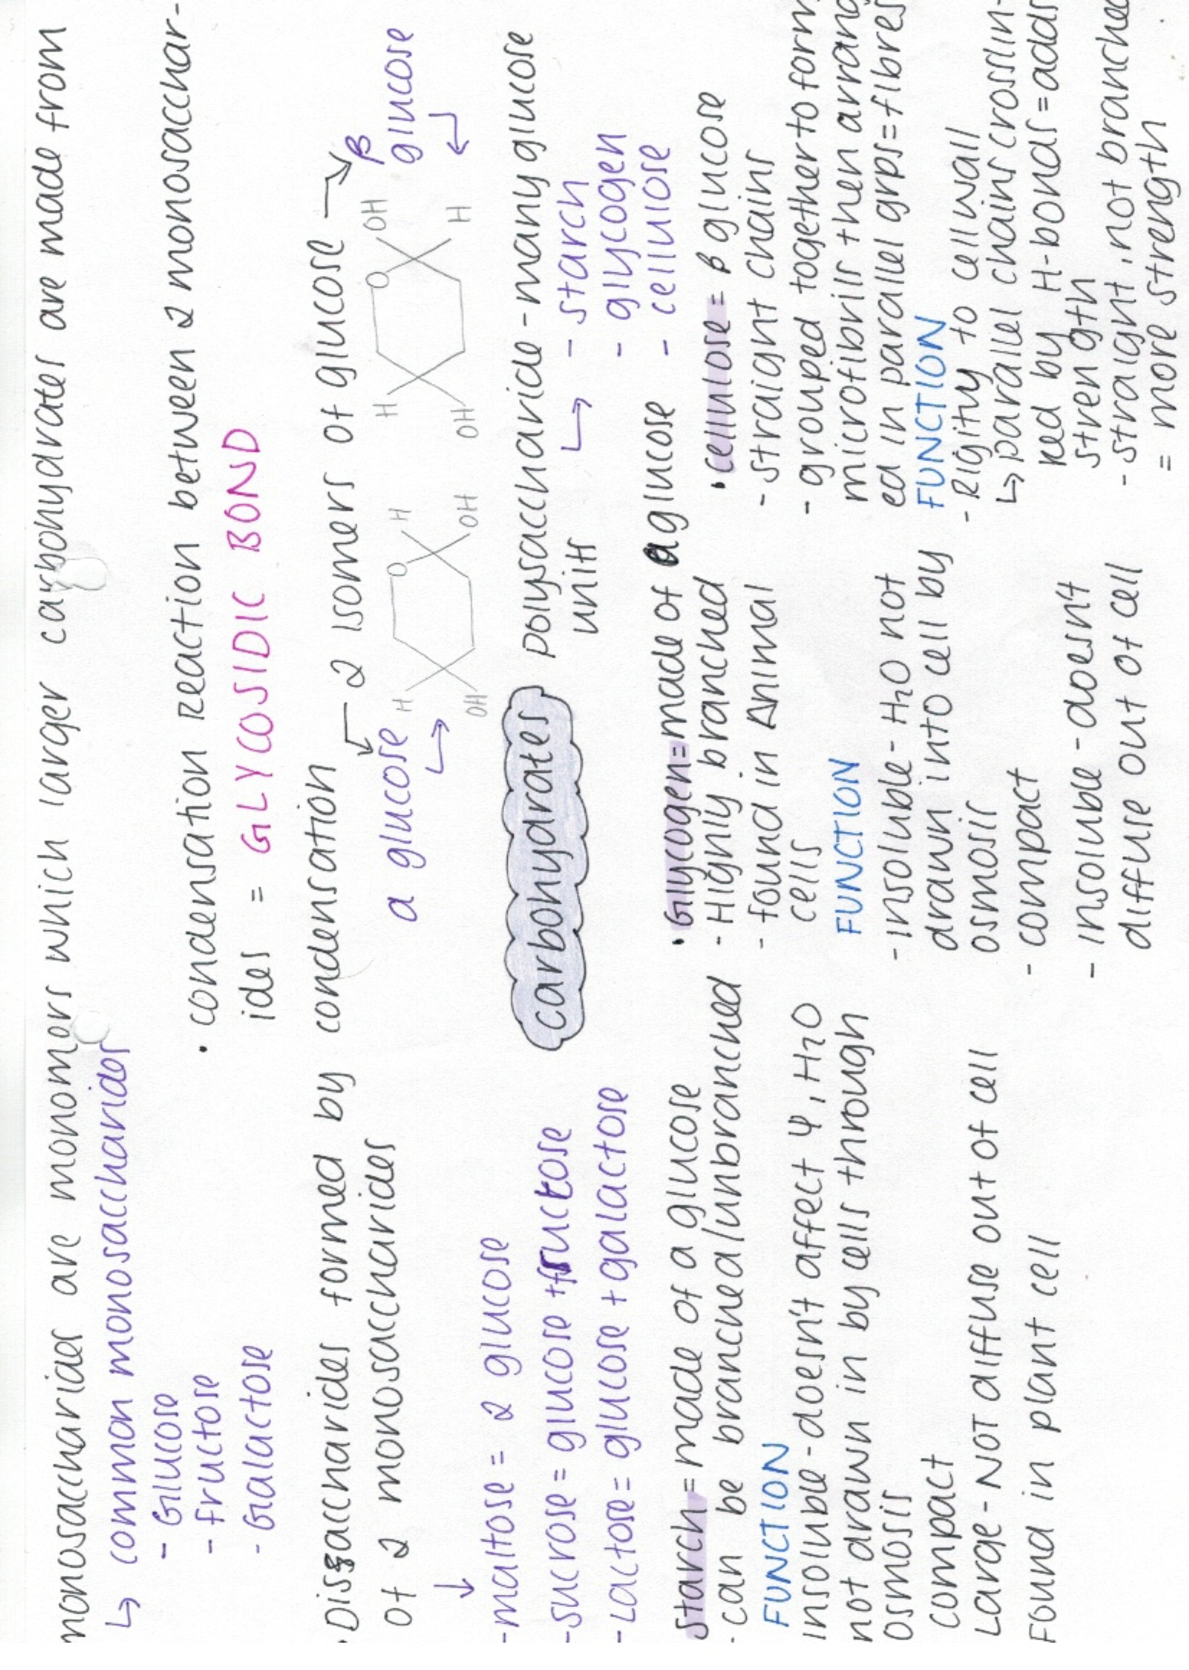 monosaccharides are monomers which larger carbohydrates are made from
↳ common monosaccharides
- Glucose
- fructose
- Galactose
• condensation reaction between 2 monosacchar-
ides = GLYCOSIDIC BOND
• Disaccharides formed by condensation
of 2 monosaccharides
↓
- maltose = 2 glucose
- sucrose = glucose + fructose
- Lactose = glucose + galactose
← 2 isomers of glucose →
a glucose
↳
H
O
H
OH
OH
β
glucose
↲
H
O
OH
H
OH
carbohydrates
polysaccharide - many glucose
units
↳ - starch
- glycogen
- cellulose
Starch = made of a glucose
- can be branched/unbranched
FUNCTION
insoluble - doesn't affect Ψ, H2O
not drawn in by cells through
osmosis
compact
Large - NOT diffuse out of cell
Found in plant cell
• Glycogen = made of a glucose
- Highly branched
- found in Animal
cells
FUNCTION
- insoluble - H2O not
drawn into cell by
osmosis
- compact
- insoluble - doesn't
diffuse out of cell
• cellulose = β glucose
- straight chains
- grouped together to form
microfibrils then arrang
ed in parallel grps = fibres
FUNCTION
- Rigitiy to cell wall
↳ parallel chains crosslin-
ked by H-bonds = adds
strength
- straight, not branched
= more strength